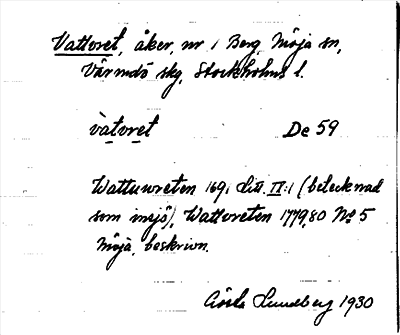 Vattvret, åker, nr 1 Berg, Möja sn,
Värmdö skg, Stockholms l.
vatvret De 59
Wattuvreten 169, Litt. II:1 (betecknad
som insjö), Wattvreten 1779,80 No 5
Möja, beskrivn.
Gösta Lundberg 1930